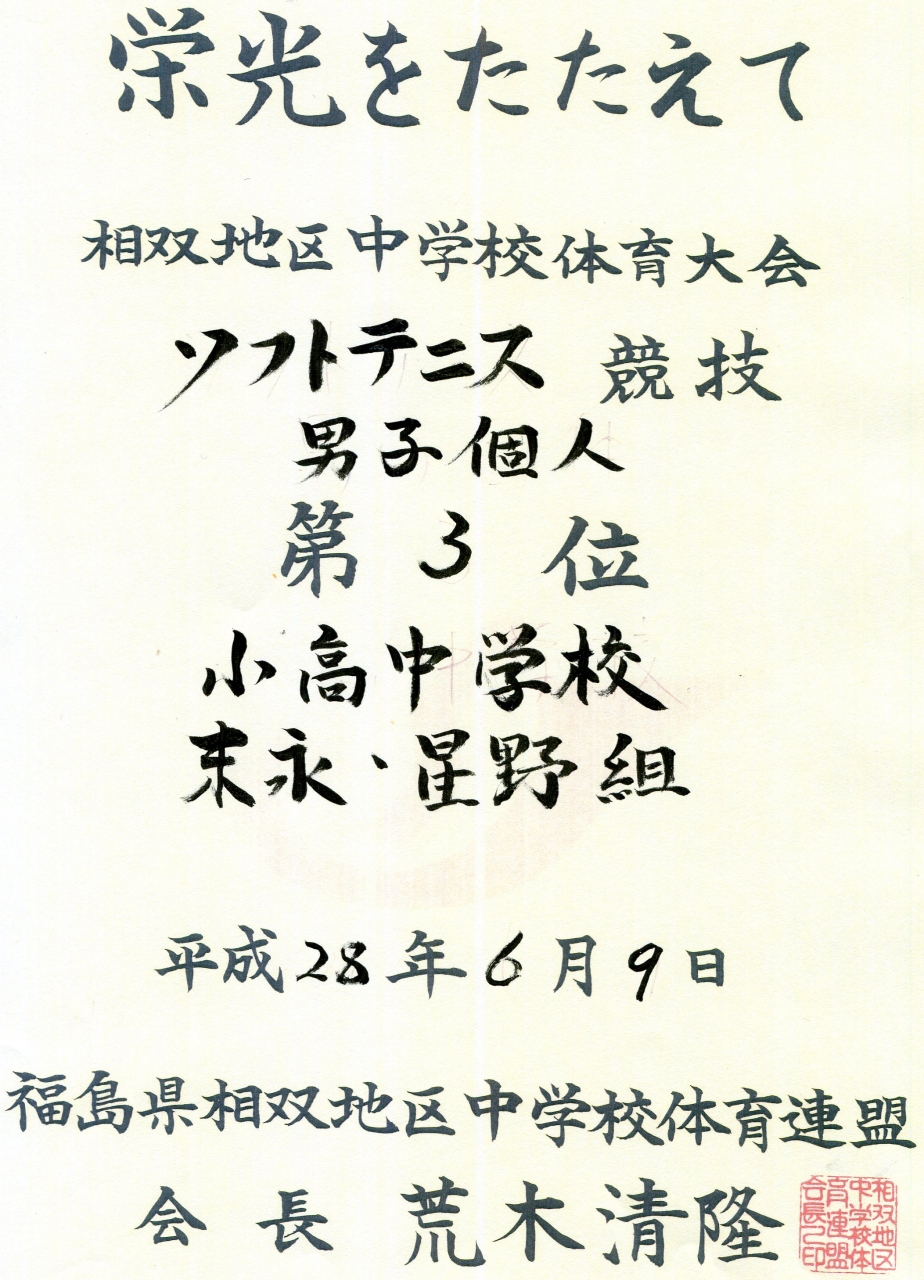 栄光をたたえて
相双地区中学校体育大会
ソフトテニス 競技
男子個人
第 3 位
小高中学校
末永・星野組
平成28年6月9日
福島県相双地区中学校体育連盟
会長 荒木清隆
相双地区
中学校体
育連盟
会長之印